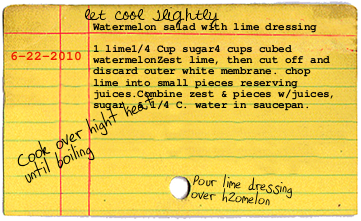 let cool slightly
Watermelon salad with lime dressing
6-22-2010
1 lime1/4 Cup sugar4 cups cubed
watermelonZest lime, then cut off and
discard outer white membrane. chop
lime into small pieces reserving
juices.Combine zest & pieces w/juices,
sugar, 1/4 C. water in saucepan.
Cook over hight heat
until boiling
Pour lime dressing
over h2omelon